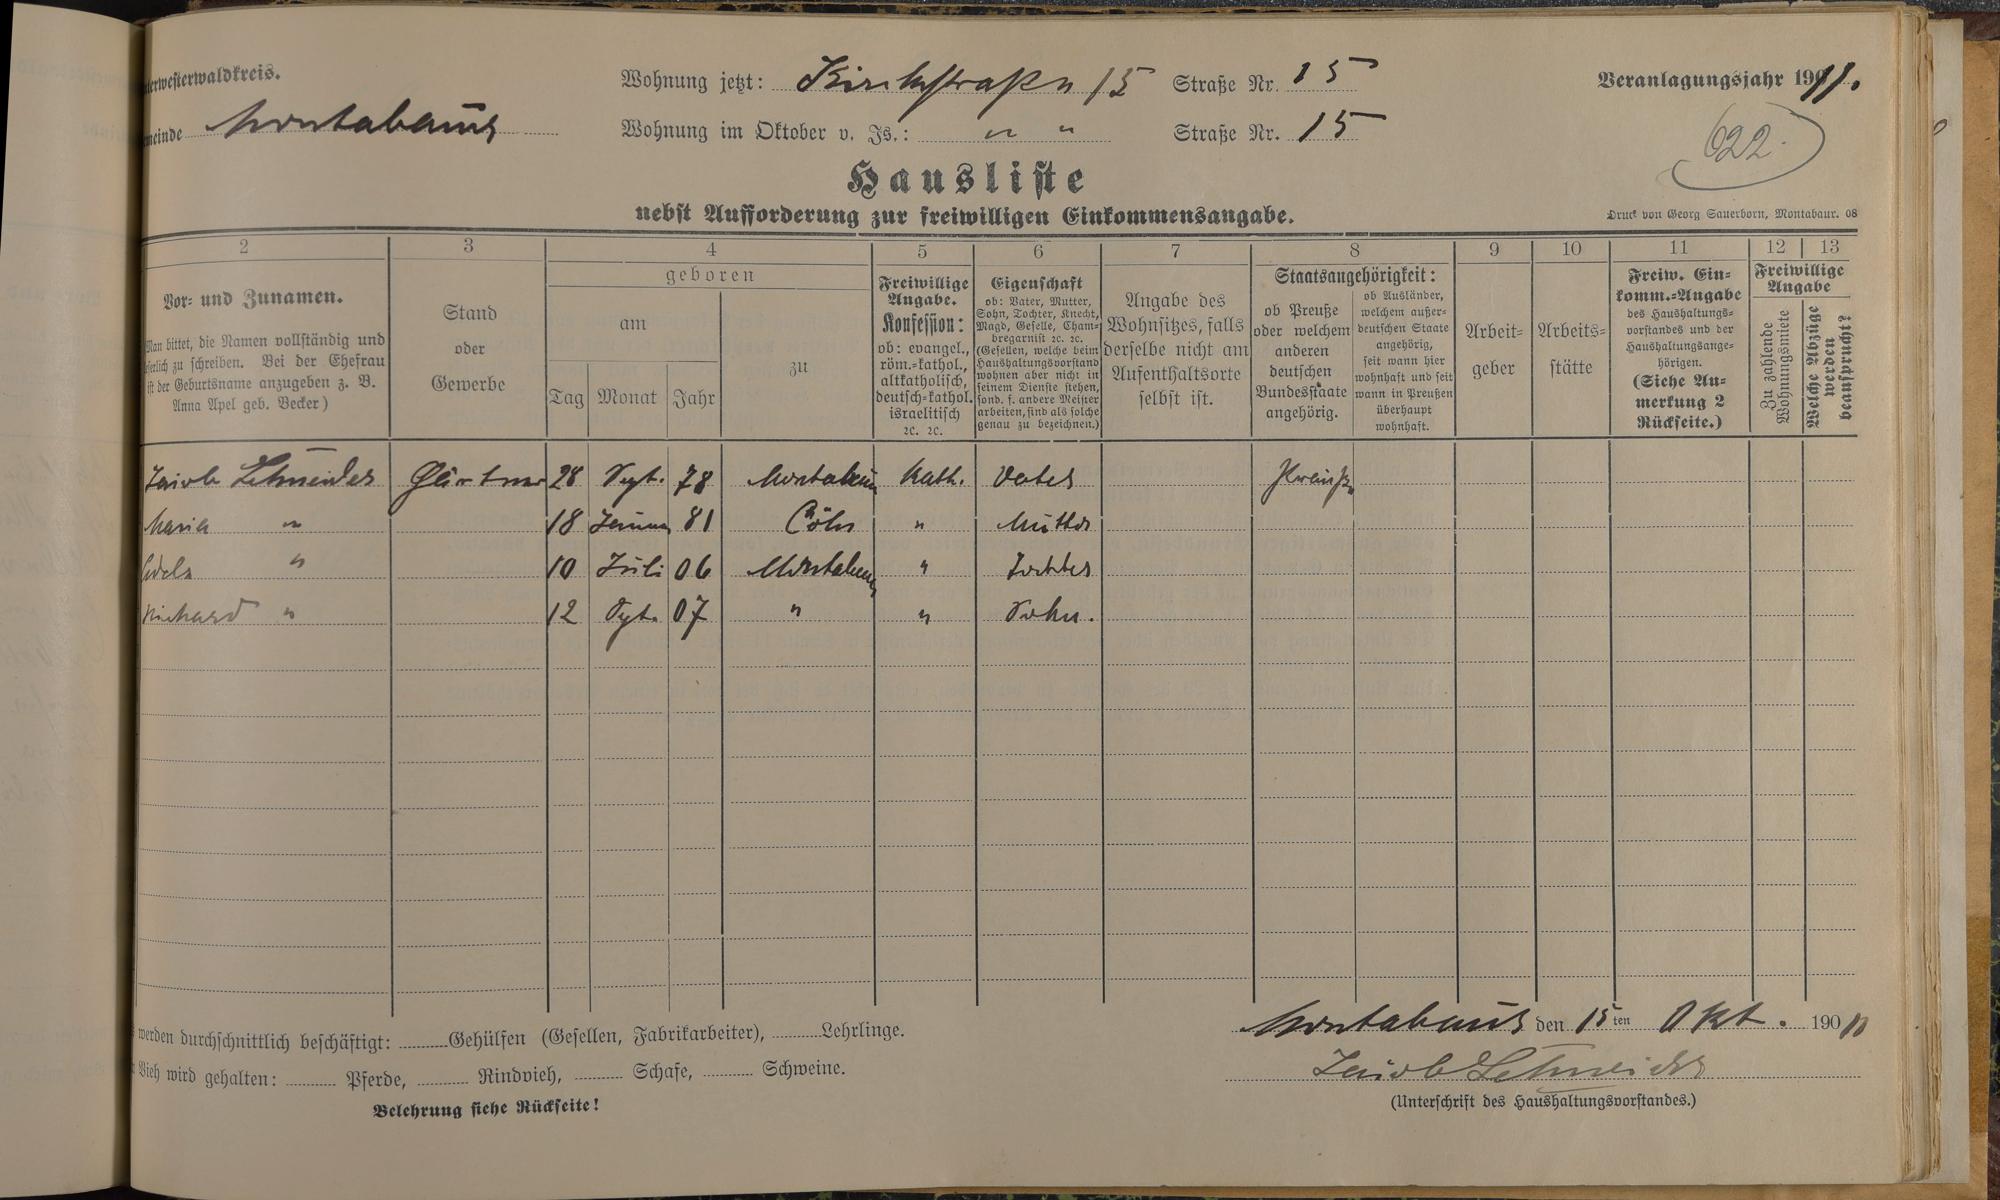 terwesterwaldkreis.
Wohnung jetzt: Kirchstraße 15 Straße Nr. 15
Veranlagungsjahr 1911.
meinde Montabaur
Wohnung im Oktober v. Js.: " " Straße Nr. 15
622.
Hausliste
nebst Aufforderung zur freiwilligen Einkommensangabe.
Druck von Georg Sauerborn, Montabaur. 08
2 3 4 5 6 7 8 9 10 11 12 13
Vor- und Zunamen.
Man bittet, die Namen vollständig und
leserlich zu schreiben. Bei der Ehefrau
ist der Geburtsname anzugeben z. B.
Anna Apel geb. Becker)
Stand
oder
Gewerbe
geboren
am
Tag Monat Jahr
zu
Freiwillige
Angabe.
Konfession:
ob: evangel.,
röm.-kathol.,
altkatholisch,
deutsch-kathol.
israelitisch
ꝛc. ꝛc.
Eigenschaft
ob: Vater, Mutter,
Sohn, Tochter, Knecht,
Magd, Geselle, Cham-
bregarnist ꝛc. ꝛc.
(Gesellen, welche beim
Haushaltungsvorstand
wohnen aber nicht in
seinem Dienste stehen,
sond. f. andere Meister
arbeiten, sind als solche
genau zu bezeichnen.)
Angabe des
Wohnsitzes, falls
derselbe nicht am
Aufenthaltsorte
selbst ist.
Staatsangehörigkeit:
ob Preuße
oder welchem
anderen
deutschen
Bundesstaate
angehörig.
ob Ausländer,
welchem außer-
deutschen Staate
angehörig,
seit wann hier
wohnhaft und seit
wann in Preußen
überhaupt
wohnhaft.
Arbeit-
geber
Arbeits-
stätte
Freiw. Ein-
komm.-Angabe
des Haushaltungs-
vorstandes und der
Haushaltungsange-
hörigen.
(Siehe An-
merkung 2
Rückseite.)
Freiwillige
Angabe
Zu zahlende
Wohnungsmiete
Welche Abzüge
werden
beansprucht?
Jacob Schneider Gärtner 28 Sept. 78 Montabaur Kath. Vater Preuße
Maria " 18 Januar 81 Cöln " Mutter
Adele " 10 Juli 06 Montabaur " Tochter
Richard " 12 Sept. 07 " " Sohn.
werden durchschnittlich beschäftigt: Gehülfen (Gesellen, Fabrikarbeiter), Lehrlinge.
Montabaur den 15ten Okt. 1910
Vieh wird gehalten: Pferde, Rindvieh, Schafe, Schweine.
Jacob Schneider
Belehrung siehe Rückseite!
(Unterschrift des Haushaltungsvorstandes.)